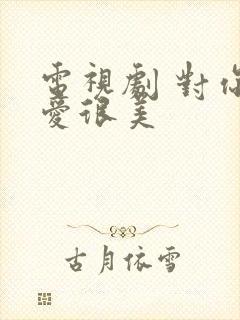 電視劇 對你
愛很美
古月依雪